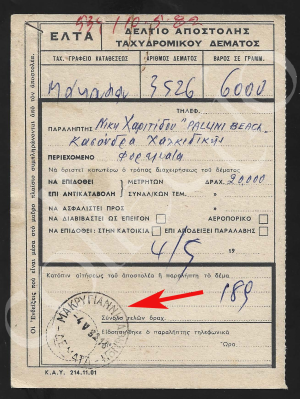 539/10-5-82
ΕΛΤΑ
ΔΕΛΤΙΟ ΑΠΟΣΤΟΛΗΣ
ΤΑΧΥΔΡΟΜΙΚΟΥ ΔΕΜΑΤΟΣ
ΤΑΧ. ΓΡΑΦΕΙΟ ΚΑΤΑΘΕΣΕΩΣ ΑΡΙΘΜΟΣ ΔΕΜΑΤΟΣ ΒΑΡΟΣ ΣΕ ΓΡΑΜ.
3526 6000
ΤΗΛΕΦ.
ΠΑΡΑΛΗΠΤΗΣ Νίκη Χαριτίδου "PALLINI BEACH
Κασάνδρα Χαλκιδικής
ΠΕΡΙΕΧΟΜΕΝΟ
Νά ὁριστεῖ κατωτέρω ὁ τρόπος διαχειρίσεως τοῦ δέματος.
ΝΑ ΕΠΙΔΟΘΕΙ ΜΕΤΡΗΤΩΝ ΔΡΑΧ. 20,000
ΕΠΙ ΑΝΤΙΚΑΤΑΒΟΛΗ ΣΥΝΑΛ/ΚΩΝ ΤΕΜ.
ΝΑ ΑΣΦΑΛΙΣΤΕΙ ΠΡΟΣ
ΝΑ ΔΙΑΒΙΒΑΣΤΕΙ ΩΣ ΕΠΕΙΓΟΝ ΑΕΡΟΠΟΡΙΚΟ
ΝΑ ΕΠΙΔΟΘΕΙ: ΣΤΗΝ ΚΑΤΟΙΚΙΑ ΕΠΙ ΑΠΟΔΕΙΞΕΙ ΠΑΡΑΛΑΒΗΣ
4/5 19
Κατόπιν αἰτήσεως τοῦ ἀποστολέα ἤ παραλήπτη τό δέμα
189
ΜΑΚΡΥΓΙΑΝΝΗ
4 V 82
ΔΕΜΑΤΑ
Σύνολο τελῶν δραχ.
Εἰδοποιήθηκε ὁ παραλήπτης τηλεφωνικά
Ὥρα.
Οἱ Ἐνδείξεις πού εἶναι μέσα στό μαῦρο πλαίσιο συμπληρώνονται ἀπό τόν ἀποστολέα.
Κ.Α.Υ. 214.11.01